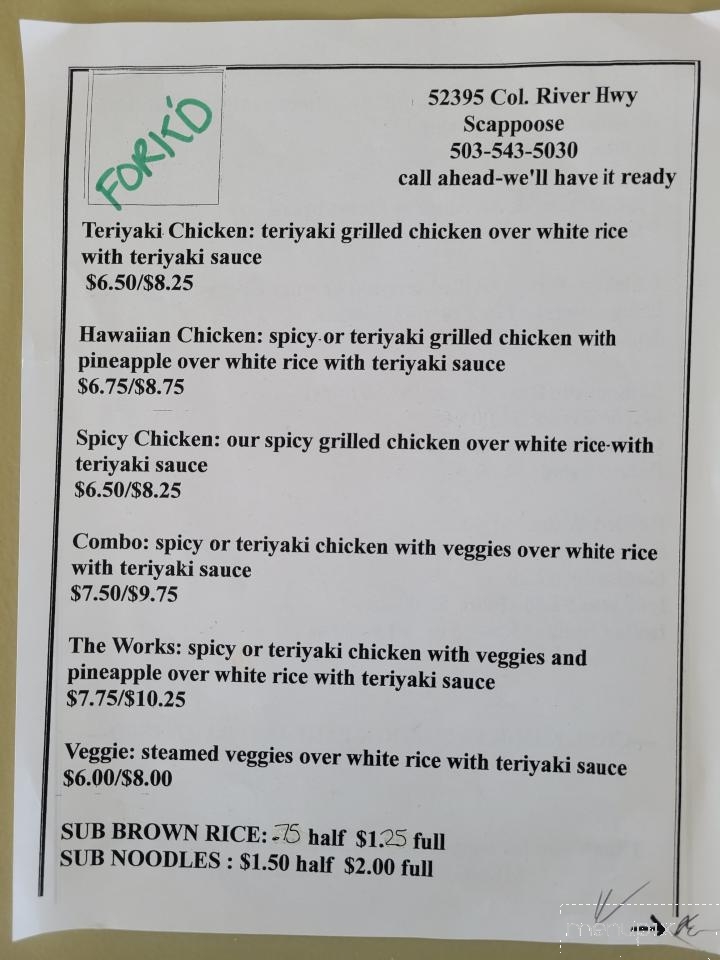 FORK'D
52395 Col. River Hwy
Scappoose
503-543-5030
call ahead-we'll have it ready
Teriyaki Chicken: teriyaki grilled chicken over white rice
with teriyaki sauce
$6.50/$8.25
Hawaiian Chicken: spicy or teriyaki grilled chicken with
pineapple over white rice with teriyaki sauce
$6.75/$8.75
Spicy Chicken: our spicy grilled chicken over white rice with
teriyaki sauce
$6.50/$8.25
Combo: spicy or teriyaki chicken with veggies over white rice
with teriyaki sauce
$7.50/$9.75
The Works: spicy or teriyaki chicken with veggies and
pineapple over white rice with teriyaki sauce
$7.75/$10.25
Veggie: steamed veggies over white rice with teriyaki sauce
$6.00/$8.00
SUB BROWN RICE: .75 half $1.25 full
SUB NOODLES : $1.50 half $2.00 full